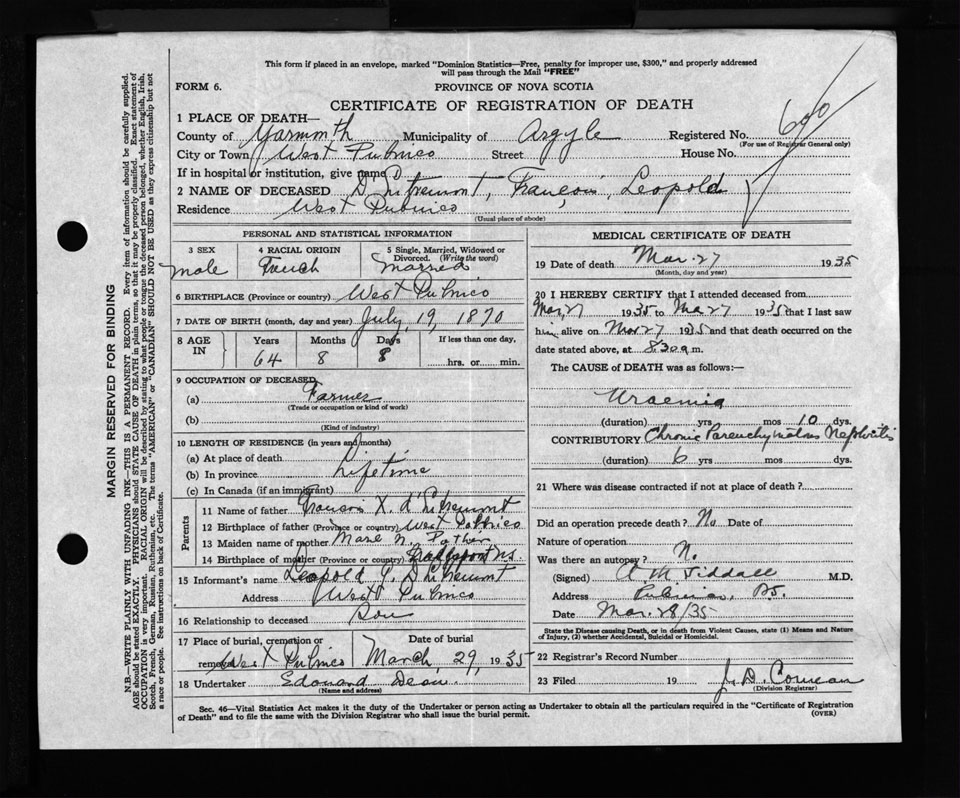 This form if placed in an envelope, marked "Dominion Statistics—Free, penalty for improper use, $300," and properly addressed
will pass through the Mail "FREE"
FORM 6.
PROVINCE OF NOVA SCOTIA
CERTIFICATE OF REGISTRATION OF DEATH
1 PLACE OF DEATH—
County of Yarmouth Municipality of Argyle Registered No. 600
(For use of Registrar General only)
City or Town West Pubnico Street House No.
If in hospital or institution, give name
2 NAME OF DECEASED D'Entremont, François, Leopold
Residence West Pubnico
(Usual place of abode)
PERSONAL AND STATISTICAL INFORMATION
3 SEX 4 RACIAL ORIGIN 5 Single, Married, Widowed or
Divorced. (Write the word)
male French Married
6 BIRTHPLACE (Province or country) West Pubnico
7 DATE OF BIRTH (month, day and year) July, 19, 1870
8 AGE IN Years Months Days If less than one day,
64 8 8 hrs. or min.
9 OCCUPATION OF DECEASED
(a) Farmer
(Trade or occupation or kind of work)
(b)
(Kind of industry)
10 LENGTH OF RESIDENCE (in years and months)
(a) At place of death
(b) In province Lifetime
(c) In Canada (if an immigrant)
Parents
11 Name of father François X. d'Entremont
12 Birthplace of father (Province or country) West Pubnico
13 Maiden name of mother Marie
14 Birthplace of mother (Province or country) N.S.
15 Informant's name Leopold J. D'Entremont
Address West Pubnico
16 Relationship to deceased Son
17 Place of burial, cremation or Date of burial
removal West Pubnico March, 29, 1935
18 Undertaker Edouard
(Name and address)
MEDICAL CERTIFICATE OF DEATH
19 Date of death Mar. 27 1935
(Month, day and year)
20 I HEREBY CERTIFY that I attended deceased from
Mar 27 1935 to Mar 27 1935 that I last saw
him alive on Mar 27 1935 and that death occurred on
date stated above, at 8.30 a m.
The CAUSE of DEATH was as follows:—
Uraemia
(duration) yrs mos 10 dys.
CONTRIBUTORY Chronic Parenchymatous Nephritis
(duration) 6 yrs mos dys.
21 Where was disease contracted if not at place of death?
Did an operation precede death? No Date of
Nature of operation
Was there an autopsy? No
(Signed) A. M. Siddall M.D.
Address Pubnico, N.S.
Date Mar. 28/35
State the Disease causing Death, or in death from Violent Causes, state (1) Means and Nature
of Injury, (2) whether Accidental, Suicidal or Homicidal.
22 Registrar's Record Number
23 Filed 19 J. D. Comeau
(Division Registrar)
Sec. 46—Vital Statistics Act makes it the duty of the Undertaker or person acting as Undertaker to obtain all the particulars required in the "Certificate of Registration
of Death" and to file the same with the Division Registrar who shall issue the burial permit. (OVER)
MARGIN RESERVED FOR BINDING
N.B.—WRITE PLAINLY WITH UNFADING INK—THIS IS A PERMANENT RECORD. Every item of information should be carefully supplied.
AGE should be stated EXACTLY. PHYSICIANS should STATE CAUSE OF DEATH in plain terms, so that it may be properly classified. Exact statement of
OCCUPATION is very important. RACIAL ORIGIN will be described by stating to what people or tongue the deceased person belonged, whether English, Irish,
Scotch, French, German, Russian, Ruthenian, etc. The terms "AMERICAN" or "CANADIAN" SHOULD NOT BE USED as they express citizenship but not
a race or people. See instructions on back of Certificate.